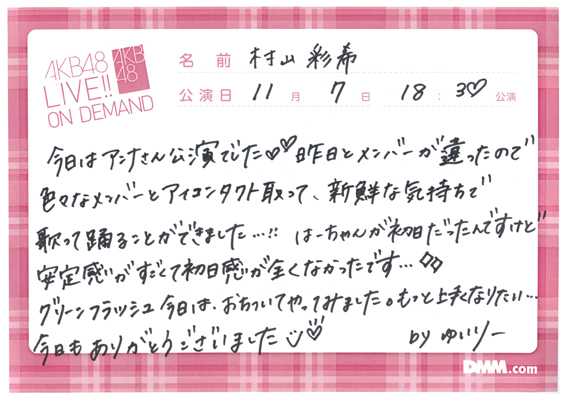 AKB48
LIVE!!
ON DEMAND
AKB
48
名前 村山彩希
公演日 11月7日 18:30公演
今日はアンナさん公演でした♡♡昨日とメンバーが違ったので
色々なメンバーとアイコンタクト取って、新鮮な気持ちで
歌って踊ることができました…!! はーちゃんが初日だったんですけど
安定感がすごくて初日感が全くなかったです…◇◇
グリーンフラッシュ今日は、おちついてやってみました。もっと上手くなりたい…
今日もありがとうございました♡
by ゆいりー
DMM.com